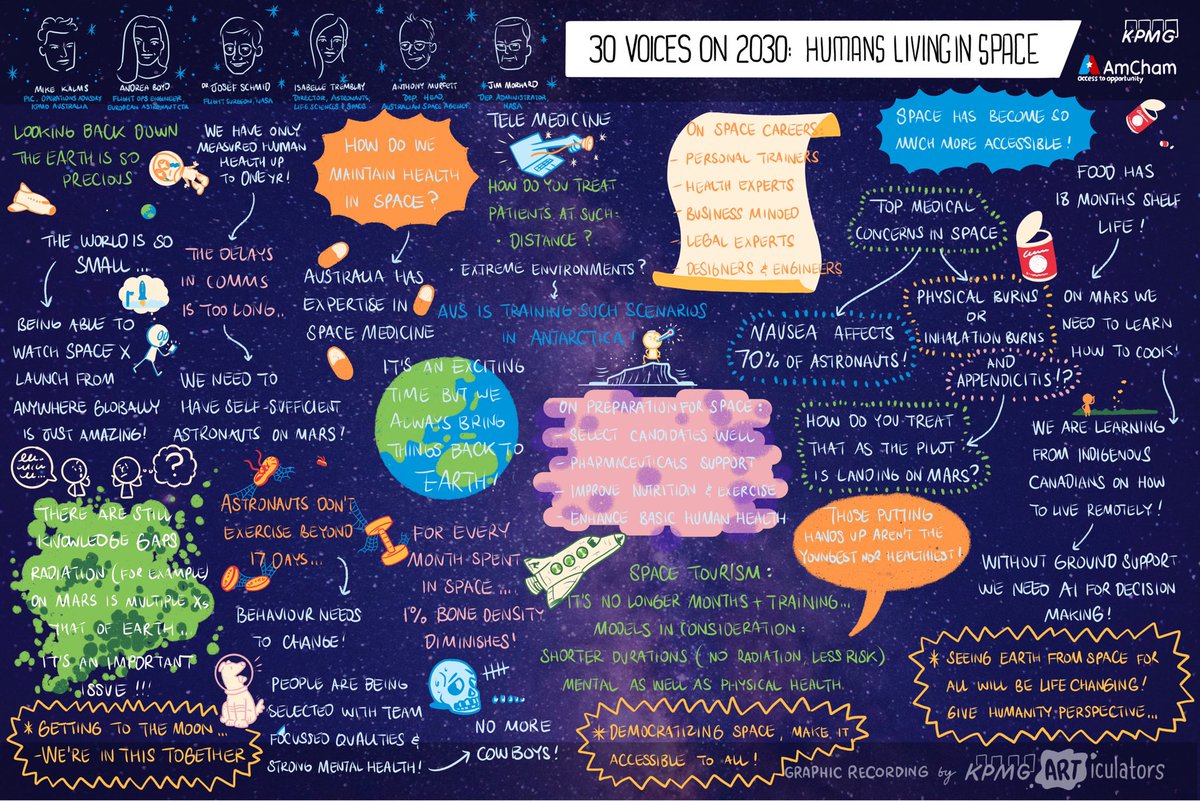 30 VOICES ON 2030: HUMANS LIVING IN SPACE
KPMG
AmCham
access to opportunity
MIKE KALMS
KPMG AUSTRALIA
ANDREA BOYD
FLIGHT OPS ENGINEER,
EUROPEAN ASTRONAUT CTR
DR JOSEF SCHMID
FLIGHT SURGEON, NASA
ISABELLE TREMBLAY
DIRECTOR, ASTRONAUTS,
LIFE SCIENCES & SPACE
ANTHONY MURFETT
DEP. HEAD,
AUSTRALIAN SPACE AGENCY
JIM MORHARD
DEP. ADMINISTRATOR
NASA
LOOKING BACK DOWN
THE EARTH IS SO
PRECIOUS
THE WORLD IS SO
SMALL...
BEING ABLE TO
WATCH SPACE X
LAUNCH FROM
ANYWHERE GLOBALLY
IS JUST AMAZING!
WE HAVE ONLY
MEASURED HUMAN
HEALTH UP
TO ONE YR!
THE DELAYS
IN COMMS
IS TOO LONG..
WE NEED TO
HAVE SELF-SUFFICIENT
ASTRONAUTS ON MARS!
HOW DO WE
MAINTAIN HEALTH
IN SPACE?
AUSTRALIA HAS
EXPERTISE IN
SPACE MEDICINE
TELE MEDICINE
HOW DO YOU TREAT
PATIENTS AT SUCH:
• DISTANCE?
• EXTREME ENVIRONMENTS?
AUS IS TRAINING SUCH SCENARIOS
IN ANTARCTICA!
ON SPACE CAREERS:
- PERSONAL TRAINERS
- HEALTH EXPERTS
- BUSINESS MINDED
- LEGAL EXPERTS
- DESIGNERS & ENGINEERS
SPACE HAS BECOME SO
MUCH MORE ACCESSIBLE!
TOP MEDICAL
CONCERNS IN SPACE
NAUSEA AFFECTS
70% OF ASTRONAUTS!
PHYSICAL BURNS
OR
INHALATION BURNS
AND
APPENDICITIS!?
HOW DO YOU TREAT
THAT AS THE PILOT
IS LANDING ON MARS?
FOOD HAS
18 MONTHS SHELF
LIFE!
ON MARS WE
NEED TO LEARN
HOW TO COOK!
WE ARE LEARNING
FROM INDIGENOUS
CANADIANS ON HOW
TO LIVE REMOTELY!
WITHOUT GROUND SUPPORT
WE NEED AI FOR DECISION
MAKING!
IT'S AN EXCITING
TIME BUT WE
ALWAYS BRING
THINGS BACK TO
EARTH!
ON PREPARATION FOR SPACE:
- SELECT CANDIDATES WELL
- PHARMACEUTICALS SUPPORT
- IMPROVE NUTRITION & EXERCISE
- ENHANCE BASIC HUMAN HEALTH
THOSE PUTTING
HANDS UP AREN'T THE
YOUNGEST NOR HEALTHIEST!
?
THERE ARE STILL
KNOWLEDGE GAPS
RADIATION (FOR EXAMPLE)
ON MARS IS MULTIPLE Xs
THAT OF EARTH...
IT'S AN IMPORTANT
ISSUE!!!
ASTRONAUTS DON'T
EXERCISE BEYOND
17 DAYS...
BEHAVIOUR NEEDS
TO CHANGE!
FOR EVERY
MONTH SPENT
IN SPACE...
1% BONE DENSITY
DIMINISHES!
SPACE TOURISM:
IT'S NO LONGER MONTHS + TRAINING...
MODELS IN CONSIDERATION:
SHORTER DURATIONS (NO RADIATION, LESS RISK)
MENTAL AS WELL AS PHYSICAL HEALTH
* GETTING TO THE MOON...
- WE'RE IN THIS TOGETHER
PEOPLE ARE BEING
SELECTED WITH TEAM
FOCUSSED QUALITIES &
STRONG MENTAL HEALTH!
NO MORE
COWBOYS!
* DEMOCRATIZING SPACE, MAKE IT
ACCESSIBLE TO ALL!
* SEEING EARTH FROM SPACE FOR
ALL WILL BE LIFE CHANGING!
GIVE HUMANITY PERSPECTIVE...
GRAPHIC RECORDING by KPMG ARTiculators